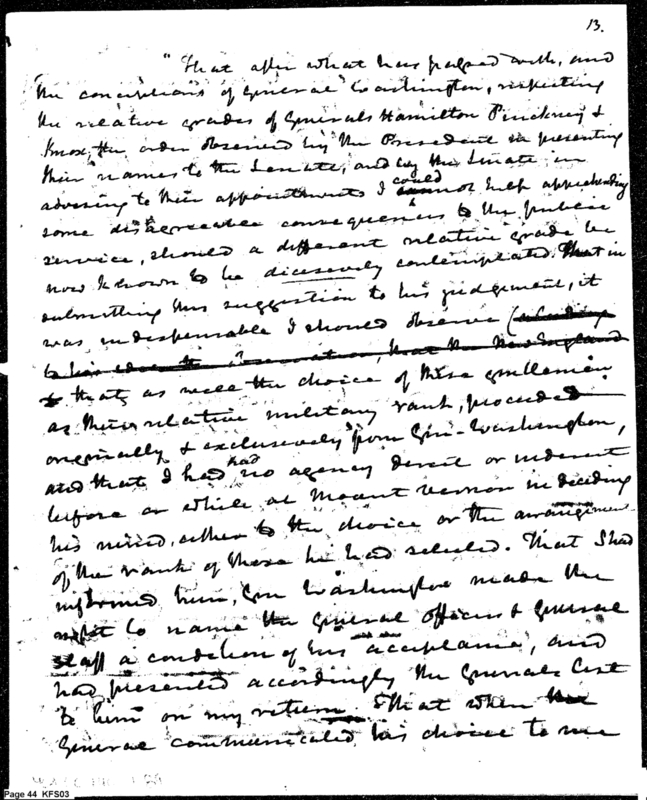 13.
"That after what has passed with, and
the conceptions of General Washington, respecting
the relative grades of Generals Hamilton Pinckney &
Knox, the order observed by the President in presenting
their names to the Senate, and by the Senate in
advising to their appointments I could not help apprehending
some disagreeable consequences to the public
service, should a different relative grade be
now known to be decisively contemplated. That in
submitting this suggestion to his judgement, it
was indispensable I should observe (alluding
to his
that, as well the choice of these gentlemen
as their relative military rank, proceeded
originally & exclusively from Gen. Washington,
and that I had had no agency direct or inderect
before or while at Mount Vernon in deciding
his mind, either to the choice or the arrangement
of the rank of those he had selected. That I had
informed him, Gen Washington made the
right to name the general officers & general
staff a condition of his acceptance, and
had presented accordingly the Generals List
to him on my return. That when the
General communicated his choice to me
Page 44 KFS03